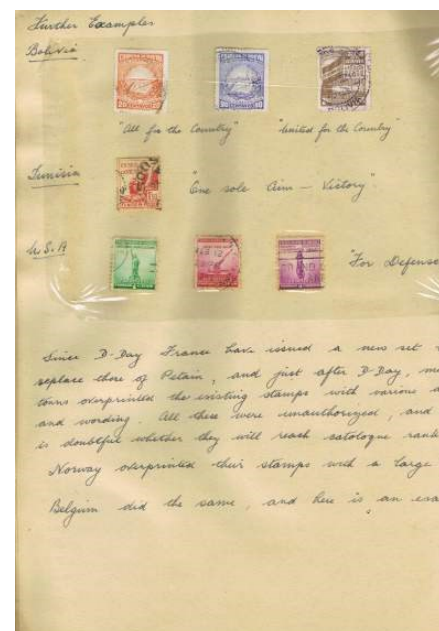 Further Examples
Bolivia
"All for the Country" "United for the Country"
Tunisia "One sole Aim — Victory".
U.S.A "For Defense
Since D-Day France have issued a new set
replace those of Petain, and just after D-Day,
towns overprinted the existing stamps with various
and wording. All these were unauthorized, and
is doubtful whether they will reach catologue rank
Norway overprinted their stamps with a large
Belgium did the same, and here is an exa